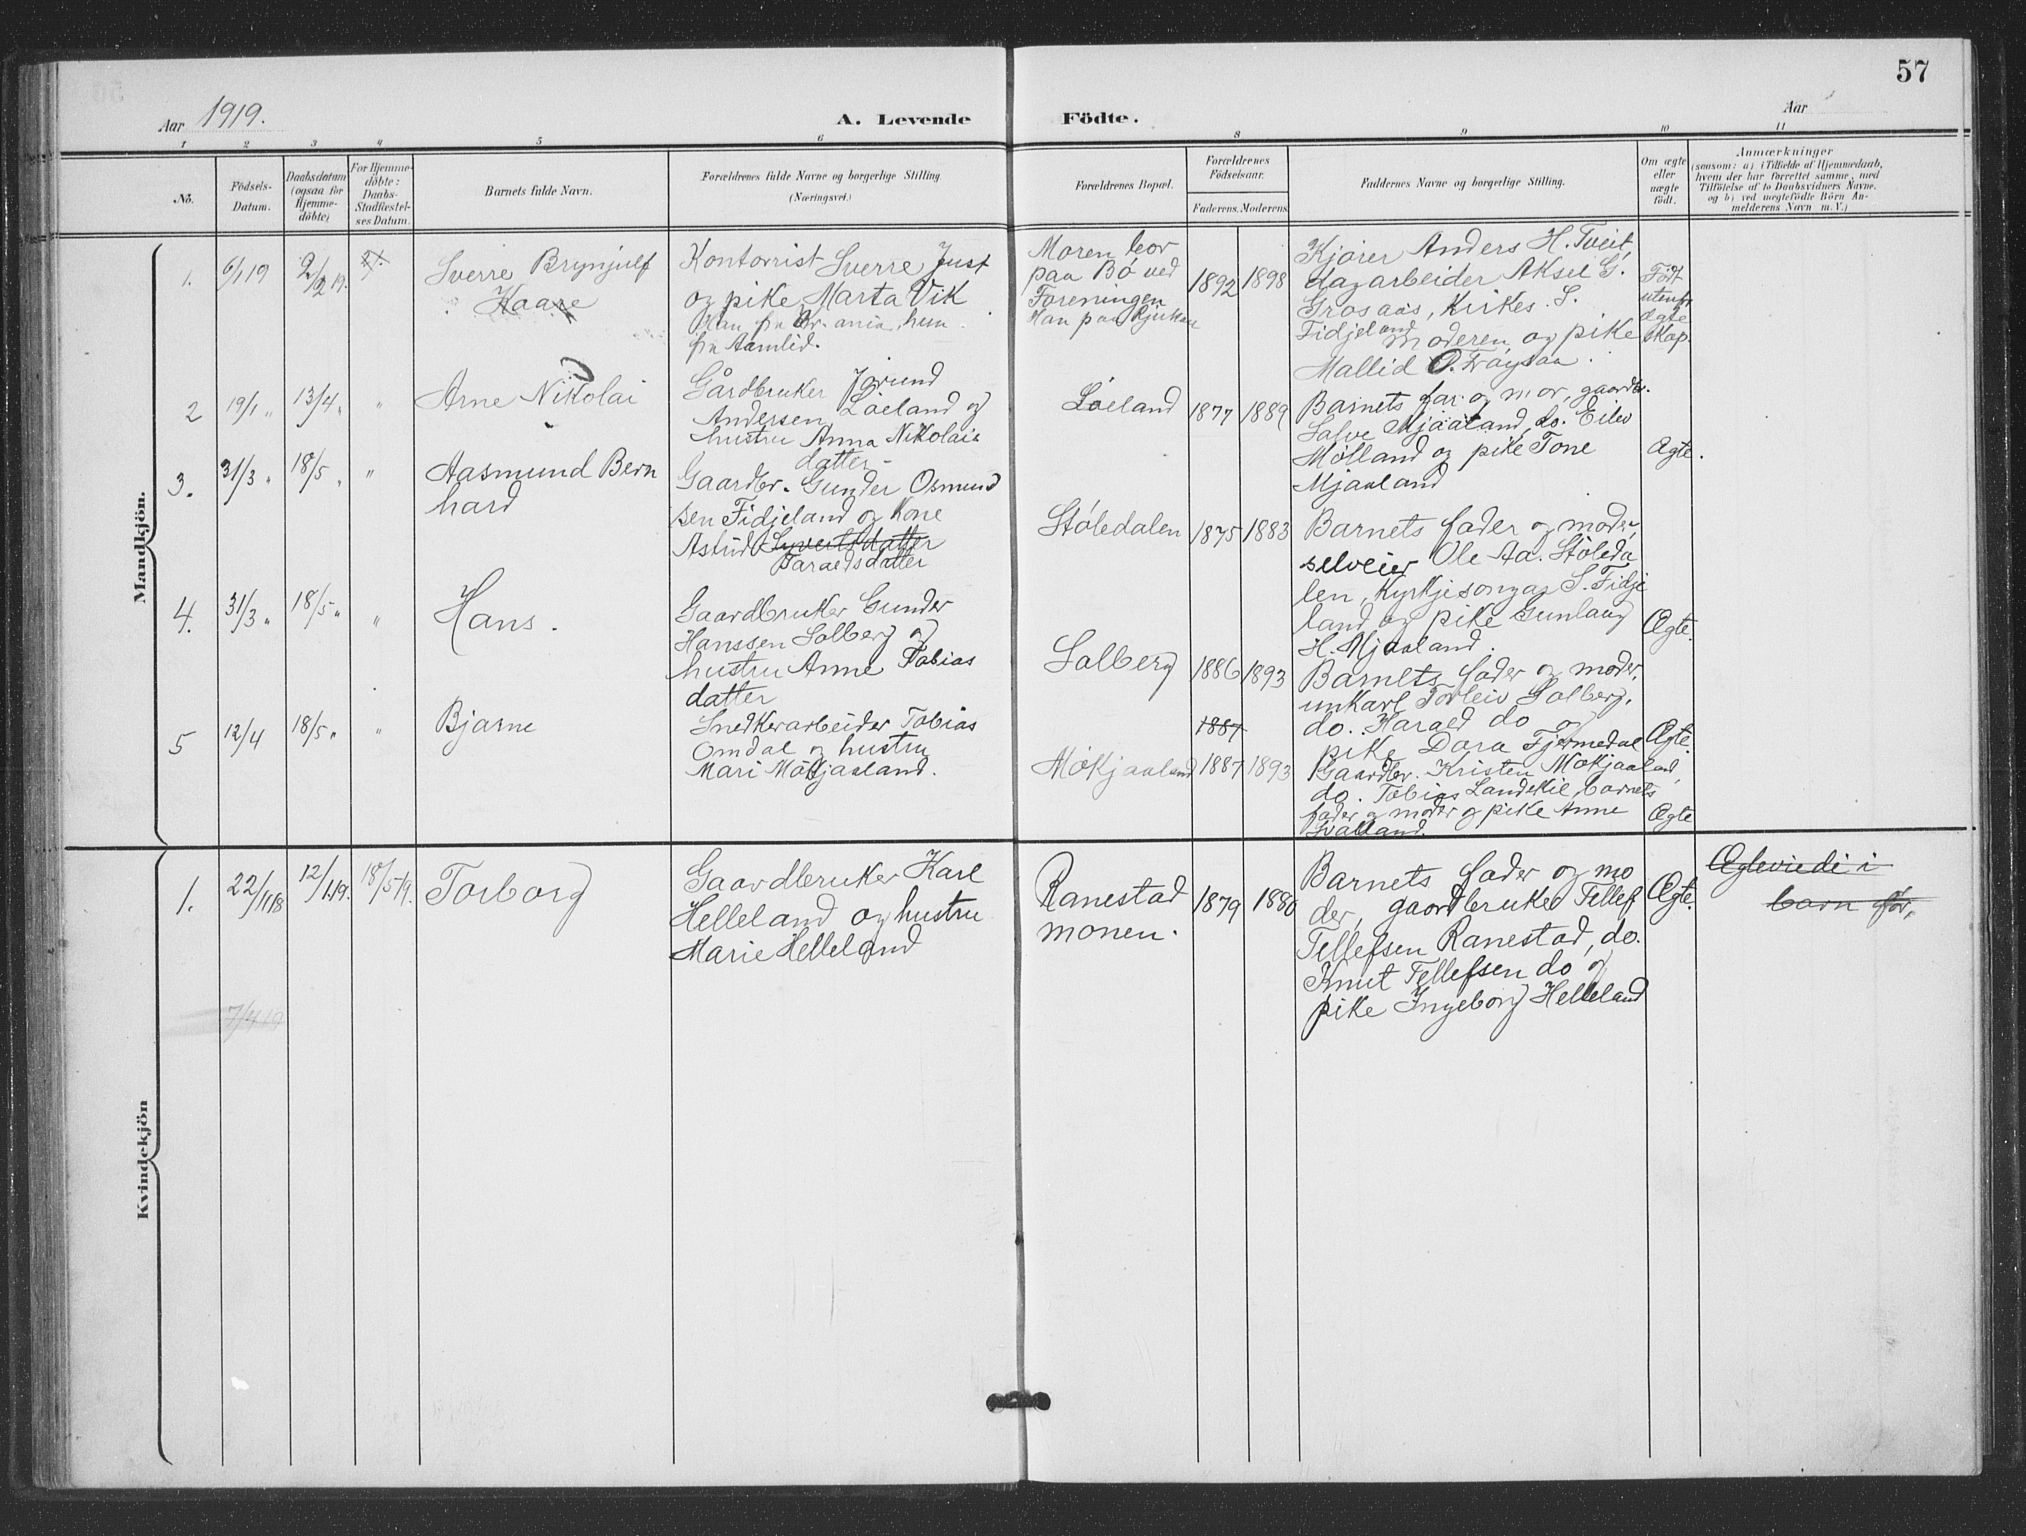 57
Aar 1919.
A. Levende Födte.
Aar
1 2 3 4 5 6 8 9 10 11
No.
Födsels-
Datum.
Daabsdatum
(ogsaa for
Hjemme-
döbte)
For Hjemme-
döbte:
Daabs-
Stadfæstel-
ses Datum.
Barnets fulde Navn.
Forældrenes fulde Navne og borgerlige Stilling
(Næringsvei.)
Forældrenes Bopæl.
Forældrenes
Födselsaar.
Faderens. Moderens.
Faddernes Navne og borgerlige Stilling.
Om ægte
eller
uægte
födt.
Anmærkninger
(saasom: a) i Tilfælde af Hjemmedaab,
hvem der har forrettet samme, med
Tilföielse af to Daabsvidners Navne.
og b) ved uægtefödte Börn An-
melderens Navn m. V.)
Mandkjön.
1. 6/1 19 2/2 19.
Sverre Brynjulf
Kaare
Kontorrist Sverre Just
og pike Marta Vik
Man fra Kr.ania, hun
fra Aamlid.
Moren bor
paa Bö ved
Foreningen
Man paa Rjukan
1892 1898
Kjörer Anders H. Tveit
dagarbeider Aksel G.
Grosaas, Kirkes. S.
Fidjeland moderen og pike
Mallid O. Fröysaa.
Födt
utenfor
ægte
skap.
2 19/1 „ 13/4 „ „
Arne Nikolai
Gårdbruker Jörund
Andersen Löeland og
hustru Anna Nikolais
datter
Löeland
1877 1889
Barnets far og mor, gaardbr.
Salve Mjaaland, do. Eilev
Mölland og pike Tone
Mjaaland
Ægte.
3. 31/3 „ 18/5 „ „
Aasmund Bern
hard
Gaardbr. Gunder Osmund
sen Fidjeland og Kone
Astrid Syvertsdatter
Baraldsdatter
Stöledalen
1875 1883
Barnets fader og moder,
selveier Ole Aa. Stöleda
len, Kyrkjesongar S. Fidje
land og pike Gunlaug
H. Mjaaland.
Ægte.
4. 31/3 „ 18/5 „ „
Hans.
Gaardbruker Gunder
Hanssen Solberg og
hustru Anne Tobias
datter
Solberg
1886 1893
Barnets fader og moder,
unkarl Torleiv Solberg,
do. Harald do og
pike Dora Fjermedal
Ægte.
5 12/4 18/5 „ „
Bjarne
Snedkerarbeider Tobias
Omdal og hustru
Mari Mökjaaland.
Mökjaaland
1887
1887 1893
Gaardbr. Kristen Mökjaaland,
do. Tobias Landskil, barnets
fader og moder og pike Anne
Svaland.
Ægte
Kvindekjön
1. 22/11 18 12/1 19. 18/5 19.
Torborg
Gaardbruker Karl
Helleland og hustru
Marie Helleland
Ranestad
monen.
1879 1880
Barnets fader og mo
der, gaardbruker Tellef
Tellefsen Ranestad, do.
Knut Tellefsen do og
pike Ingeborg Helleland
Ægte.
Ægteviedi i
barn för,
7/4 19